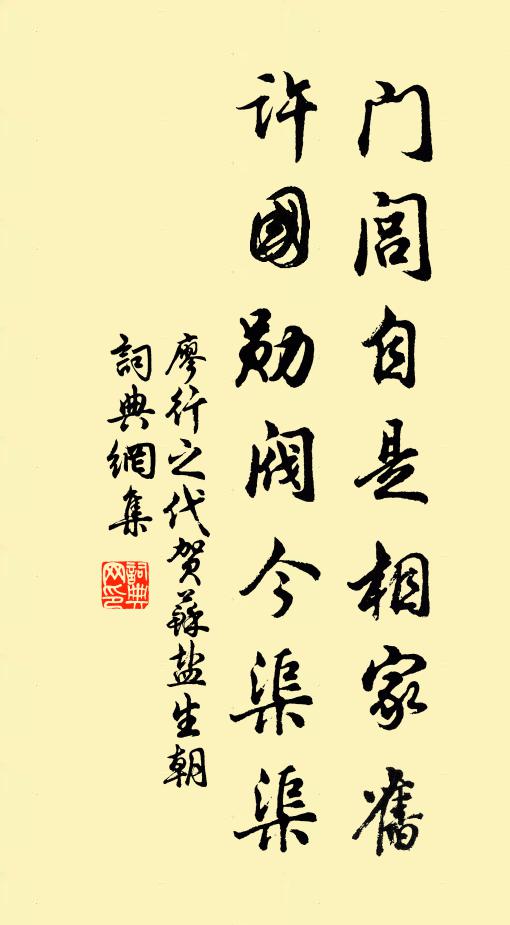 门闾自是相家舊
许國勋阀今渠渠
廖行之代贺蘇盐生朝
詞典網集
詞典
网印